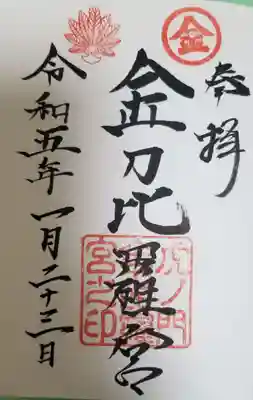 奉拝
金
金刀比羅宮
虎ノ門
宮之印
令和五年一月二十三日